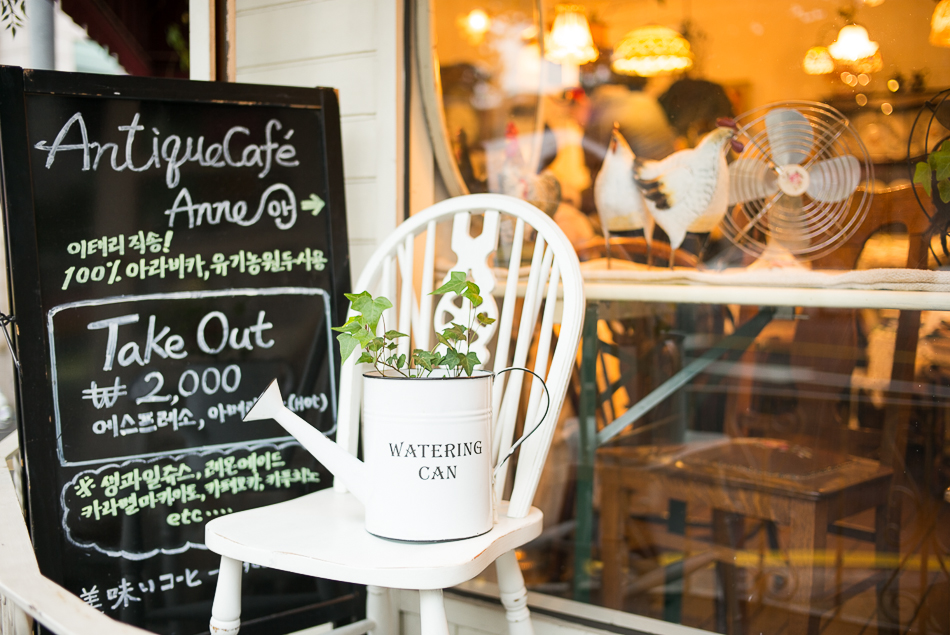 Antique Café
Anne 안 →
이테리 직송!
100% 아라비카, 유기농원두사용
Take Out
₩ 2,000
에스프레소, (Hot)
※ 생과일쥬스, 레몬에이드
카라멜마끼아또, 카페모카, 카푸치노
etc....
美味いコーヒー
WATERING
CAN